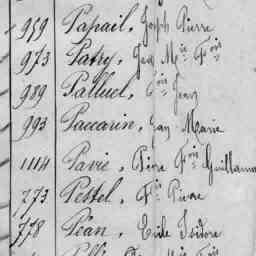 959 Papail, Joseph Pierre
973 Patry, Jean Mie Fois
989 Palluel, Fois Jean
993 Paccarin, Jean Marie
1114 Pavie, Pierre Fois Guillaume
773 Pestel, Fs Pierre
778 Péan, Emile Isidore